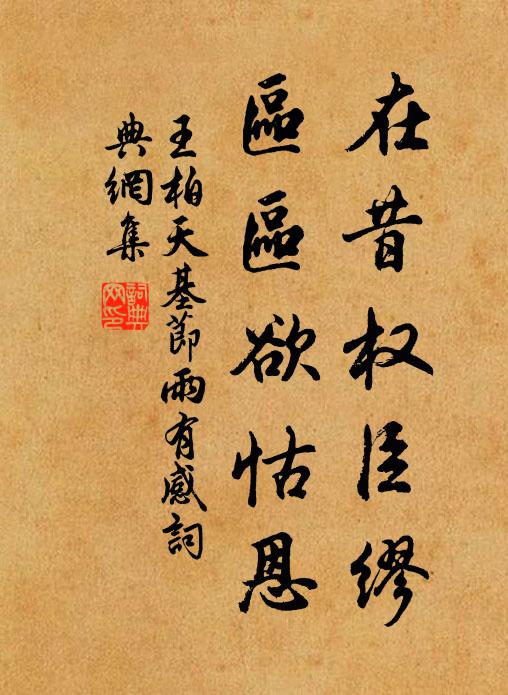 在昔权臣缪
區區欲怙恩
王柏天基節雨有感詞
典網集
詞典
网印